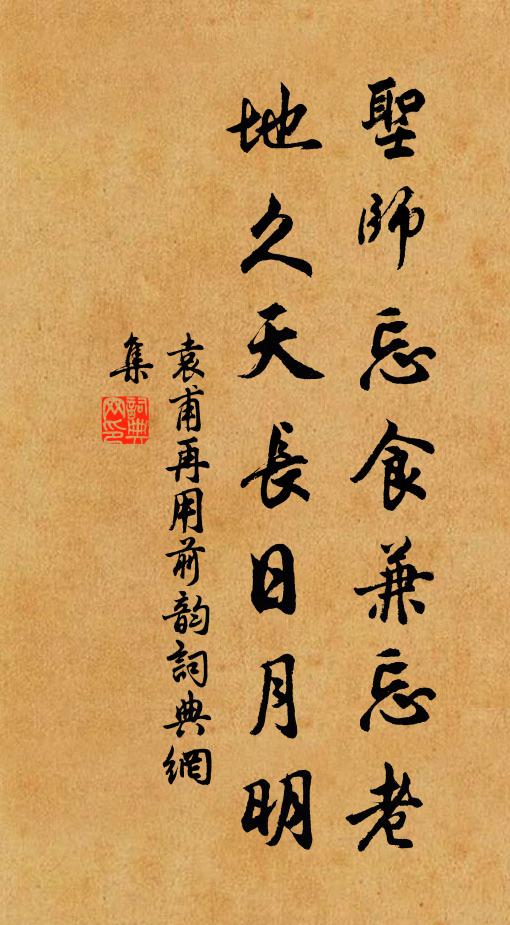 聖師忘食兼忘老
地久天長日月明
袁甫再用前韵詞典網
集
詞典網印